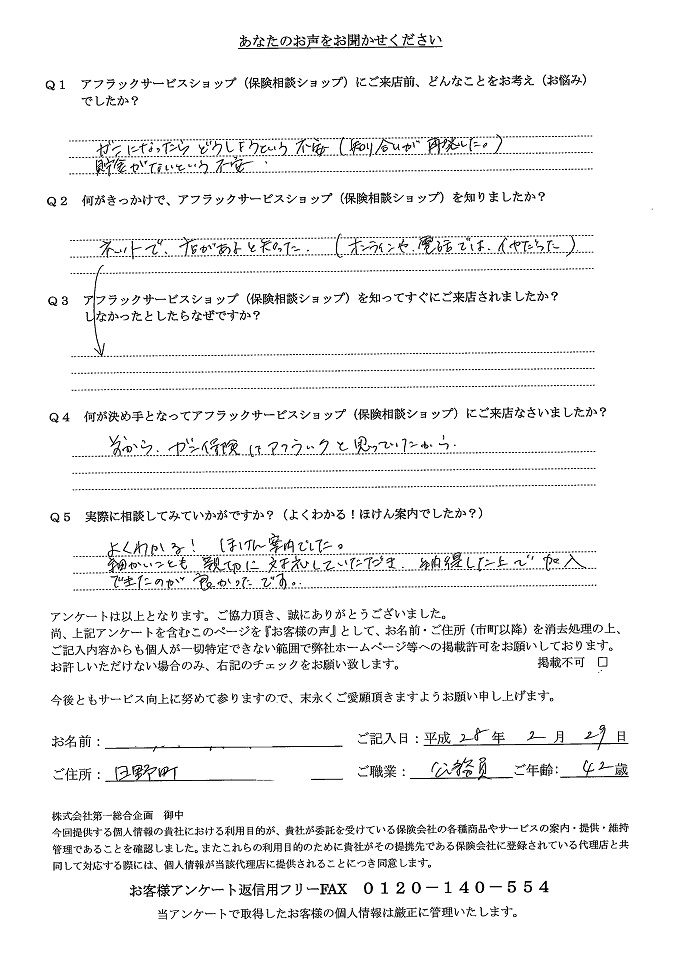 あなたのお声をお聞かせください
Q1 アフラックサービスショップ（保険相談ショップ）にご来店前、どんなことをお考え（お悩み）
でしたか？
ガンになったらどうしようという不安（知り合いが再発した。）
貯金がないという不安.
Q2 何がきっかけで、アフラックサービスショップ（保険相談ショップ）を知りましたか？
ネットで、店があると知った.（オンラインや、電話では、イヤだった）
Q3 アフラックサービスショップ（保険相談ショップ）を知ってすぐにご来店されましたか？
しなかったとしたらなぜですか？
Q4 何が決め手となってアフラックサービスショップ（保険相談ショップ）にご来店なさいましたか？
から、ガン保険はアフラックと思っていたから.
Q5 実際に相談してみていかがですか？（よくわかる！ほけん案内でしたか？）
よくわかる！ ほけん案内でした。
細かいことも親切に対応していただき、納得した上で加入
できたのが良かったです。
アンケートは以上となります。ご協力頂き、誠にありがとうございました。
尚、上記アンケートを含むこのページを『お客様の声』として、お名前・ご住所（市町以降）を消去処理の上、
ご記入内容からも個人が一切特定できない範囲で弊社ホームページ等への掲載許可をお願いしております。
お許しいただけない場合のみ、右記のチェックをお願い致します。 掲載不可 □
今後ともサービス向上に努めて参りますので、末永くご愛顧頂きますようお願い申し上げます。
お名前： ご記入日：平成 28 年 2 月 29 日
ご住所： 日野町 ご職業： 公務員 ご年齢： 42 歳
株式会社第一総合企画 御中
今回提供する個人情報の貴社における利用目的が、貴社が委託を受けている保険会社の各種商品やサービスの案内・提供・維持
管理であることを確認しました。またこれらの利用目的のために貴社がその提携先である保険会社に登録されている代理店と共
同して対応する際には、個人情報が当該代理店に提供されることにつき同意します。
お客様アンケート返信用フリーFAX 0120－140－554
当アンケートで取得したお客様の個人情報は厳正に管理いたします。